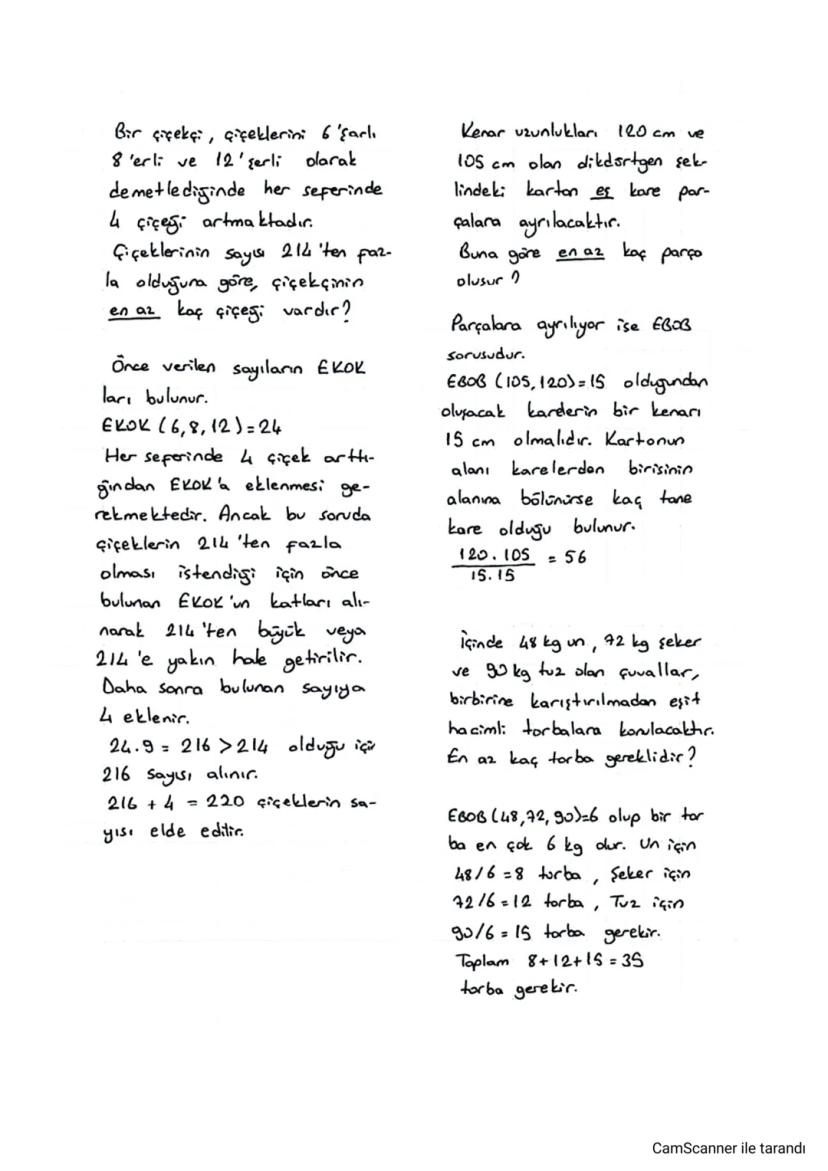 Bir çiçekçi, çiçeklerini 6'şarlı
8'erli ve 12'şerli olarak
demetlediğinde her seferinde
4 çiçeği artmaktadır.
Çiçeklerinin sayısı 214'ten faz-
la olduğuna göre, çiçekçinin
en az kaç çiçeği vardır?
Önce verilen sayıların EKOK
ları bulunur.
EKOK (6,8,12)=24
Her seferinde 4 çiçek arttı-
ğından EKOK'a eklenmesi ge-
rekmektedir. Ancak bu soruda
çiçeklerin 214'ten fazla
olması istendiği için önce
bulunan EKOK'un katları alı-
narak 214'ten büyük veya
214'e yakın hale getirilir.
Daha sonra bulunan sayıya
4 eklenir.
24.9 = 216 > 214 olduğu için
216 sayısı alınır.
216 + 4 = 220 çiçeklerin sa-
yısı elde edilir.
Kenar uzunlukları 120 cm ve
105 cm olan dikdörtgen şek-
lindeki karton eş kare par-
çalara ayrılacaktır.
Buna göre en az kaç parça
oluşur?
Parçalara ayrılıyor ise EBOB
sorusudur.
EBOB (105,120)=15 olduğundan
oluşacak karderin bir kenarı
15 cm olmalıdır. Kartonun
alanı karelerden birisinin
alanına bölünürse kaç tane
kare olduğu bulunur.
120.105
= 56
15.15
İçinde 48 kg un, 72 kg şeker
ve 90 kg tuz olan çuvallar,
birbirine karıştırılmadan eşit
hacimli torbalara konulacaktır.
En az kaç torba gereklidir?
EBOB (48,72,90)=6 olup bir tor
ba en çok 6 kg olur. Un için
48/6=8 torba, Şeker için
72/6=12 torba, Tuz için
90/6=15 torba gerekir.
Toplam 8+12+15=35
torba gerekir.
CamScanner ile tarandı